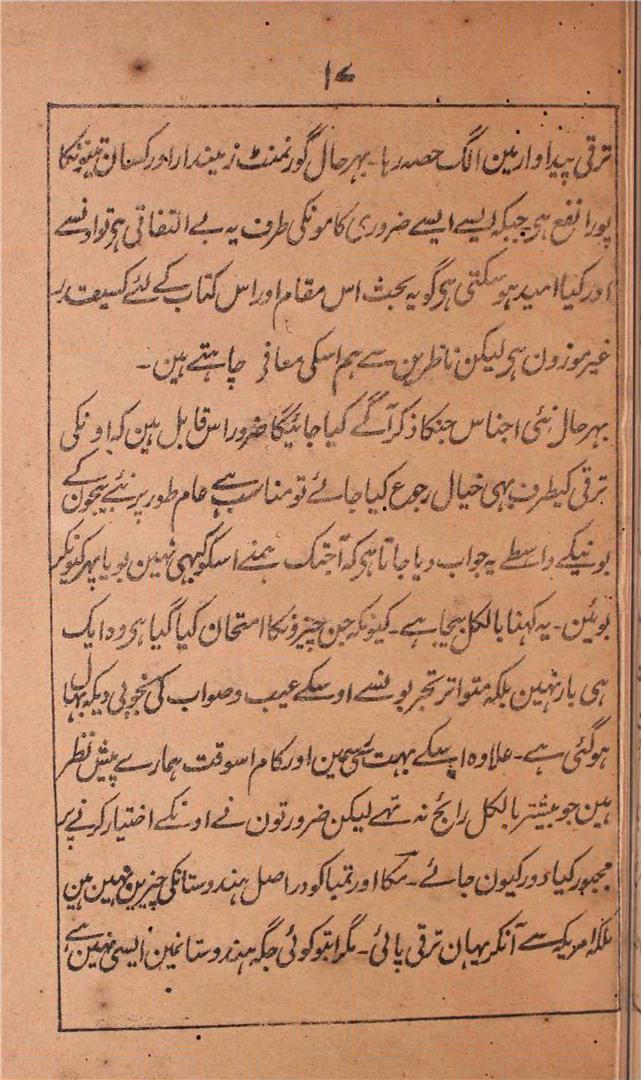 ۱۷
ترقی پیداوار مین الگ حصہ رہا۔ بہرحال گورنمنٹ زمیندار اور کسان تینونکا
پورا نفع ہی جبکہ ایسے ایسے ضروری کامونکی طرف یہ بے التفاتی ہی تو اونسے
اور کیا امید ہو سکتی ہی گو یہ بحث اس مقام اور اس کتاب کے لئے کسیقدر
غیر موزون ہی لیکن ناظرین سے ہم اسکی معافی چاہتے ہین۔
بہرحال نئی اجناس جنکا ذکر آگے کیا جائیگا ضرور اس قابل ہین کہ اونکی
ترقی کیطرف بہی خیال رجوع کیا جائے تو مناسب ہے عام طور پر نئے بیجون کے
بونیکے واسطے یہ جواب دیا جاتا ہی کہ آجتک ہمنے اسکو کبہی نہین بویا پہر کیونکر
بوئین۔ یہ کہنا بالکل بیجا ہے۔ کیونکہ جن چیزونکا امتحان کیا گیا ہی وہ ایک
ہی بار نہین بلکہ متواتر تجربونسے اوسکے عیب و صواب کی بخوبی دیکہ بہال
ہوگئی ہے۔ علاوہ اسکے بہت سی رسمین اور کام اسوقت ہمارے پیش نظر
ہین جو پیشتر بالکل رائج نہ تہے لیکن ضرورتون نے اونکے اختیار کرنے پر
مجبور کیا دور کیون جائے۔ مکا اور تمباکو دراصل ہندوستانکی چیزین نہین ہین
بلکہ امریکہ سے آنکر یہان ترقی پائی۔ مگر ابتو کوئی جگہ ہندوستانمین ایسی نہین ہے